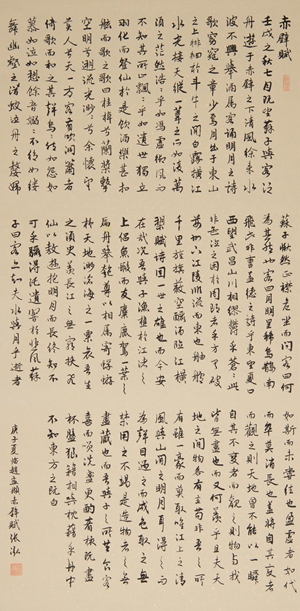 赤壁賦
壬戌之秋七月既望蘇子與客泛
舟遊於赤壁之下清風徐來水
波不興舉酒屬客誦明月之詩
歌窈窕之章少焉月出於東山
之上徘徊於斗牛之間白露橫江
水光接天縱一葦之所如凌萬
頃之茫然浩浩乎如馮虛御風而
不知其所止飄飄乎如遺世獨立
羽化而登仙於是飲酒樂甚扣
舷而歌之歌曰桂棹兮蘭槳擊
空明兮溯流光渺渺兮余懷望
美人兮天一方客有吹洞簫者
倚歌而和之其聲嗚嗚然如怨如
慕如泣如訴餘音嫋嫋不絕如縷
舞幽壑之潛蛟泣孤舟之嫠婦
蘇子愀然正襟危坐而問客曰何
為其然也客曰月明星稀烏鵲南
飛此非曹孟德之詩乎東望夏口
西望武昌山川相繆鬱乎蒼蒼此
非孟德之困於周郎者乎方其破
荊州下江陵順流而東也舳艫
千里旌旗蔽空釃酒臨江橫
槊賦詩固一世之雄也而今安
在哉況吾與子漁樵於江渚之
上侶魚蝦而友麋鹿駕一葉之
扁舟舉匏樽以相屬寄蜉蝣
於天地渺滄海之一粟哀吾生
之須臾羨長江之無窮挾飛
仙以遨遊抱明月而長終知不
可乎驟得託遺響於悲風蘇
子曰客亦知夫水與月乎逝者
如斯而未嘗往也盈虛者如代
而卒莫消長也蓋將自其變者
而觀之則天地曾不能以一瞬
自其不變者而觀之則物與我
皆無盡也而又何羨乎且夫天
地之間物各有主苟非吾之所
有雖一毫而莫取惟江上之清
風與山間之明月耳得之而
為聲目遇之而成色取之無
禁用之不竭是造物者之無
盡藏也而吾與子之所共食客
喜而笑洗盞更酌肴核既盡
杯盤狼籍相與枕藉乎舟中
不知東方之既白
庚子夏錄趙孟頫赤壁賦張泓